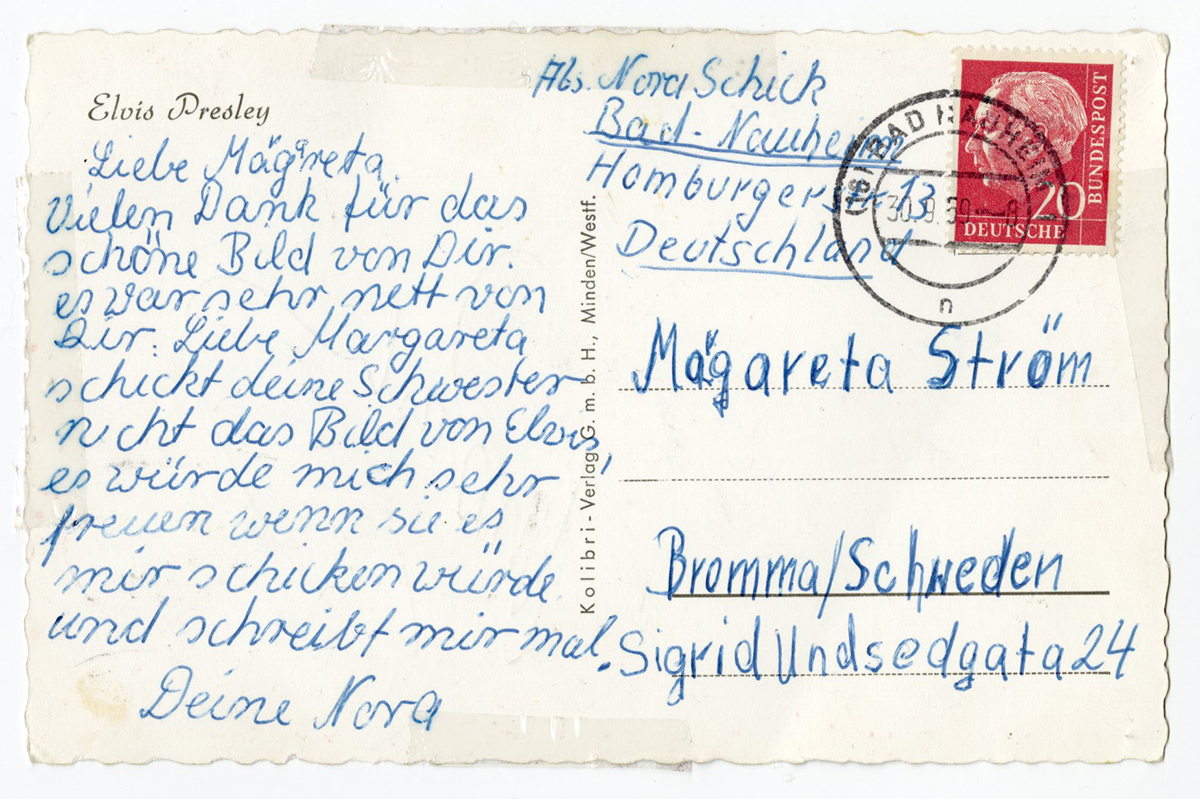 Elvis Presley
Liebe Mägareta.
Vielen Dank für das
schöne Bild von Dir.
es war sehr nett von
Dir. Liebe Margareta
schickt deine Schwester
nicht das Bild von Elvis,
es würde mich sehr
freuen wenn sie es
mir schicken würde.
und schreibt mir mal.
Deine Nora
Kolibri-Verlag G.m.b.H., Minden/Westf.
Abs. Nora Schick
Bad-Nauheim
Homburgerstr 13
Deutschland
(16) BAD NAUHEIM
30.9.59 -8
n
20
BUNDESPOST
DEUTSCHE
Mägareta Ström
Bromma/Schweden
Sigrid Undsedgata 24